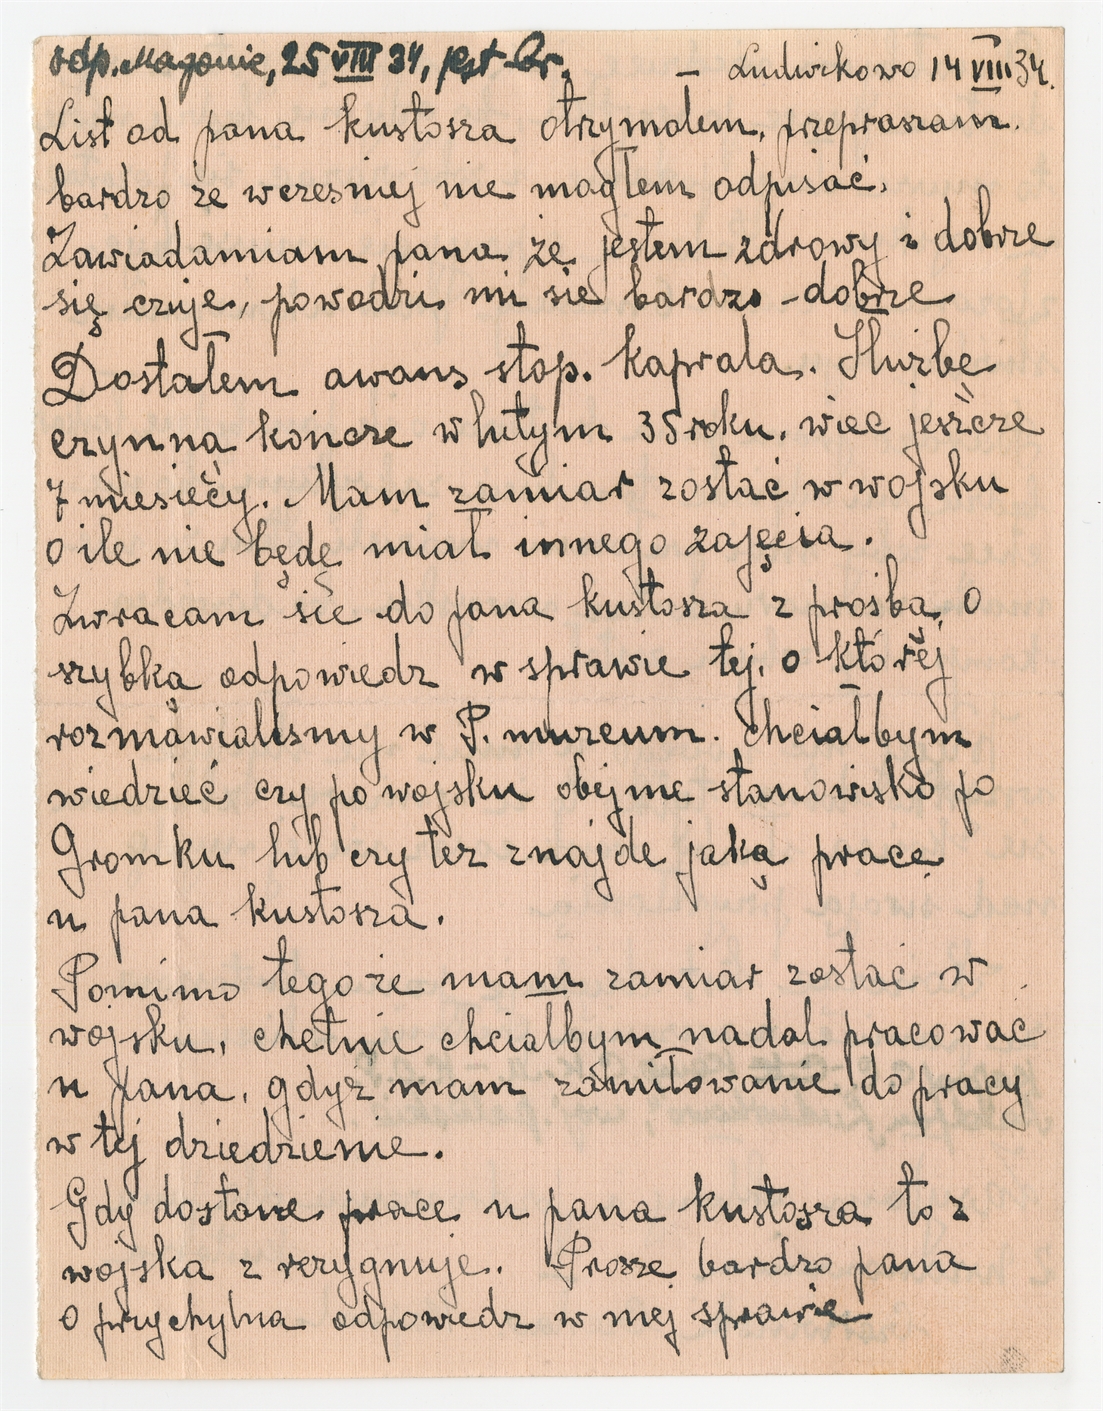 odp. Magonie, 25 VIII 34, jest Br.
– Ludwikowo 14 VIII 34.
List od pana kustosza otrzymałem, przepraszam.
bardzo że wczesniej nie mogłem odpisać,
Zawiadamiam pana że jestem zdrowy i dobrze
się czuje, powodzi mi sie bardzo dobrze
Dostałem awans stop. kaprala. Służbę
czynną kończe w lutym 35 roku. wiec jeszcze
7 miesięcy. Mam zamiar zostać w wojsku
o ile nie będę miał innego zajęcia.
Zwracam sie do pana kustosza z prośbą o
szybką odpowiedz w sprawie tej, o której
rozmawialismy w P. muzeum. chciałbym
wiedzieć czy po wojsku obejme stanowisko po
Gromku lub czy też znajde jaką pracę
u pana kustosza.
Pomimo tego że mam zamiar zostać w
wojsku, chetnie chciałbym nadal pracować
u pana, gdyż mam zamiłowanie do pracy
w tej dziedzienie.
Gdy dostane prace u pana kustosza to z
wojska z rezygnuje. Proszę bardzo pana
o przychylna odpowiedz w mej sprawie